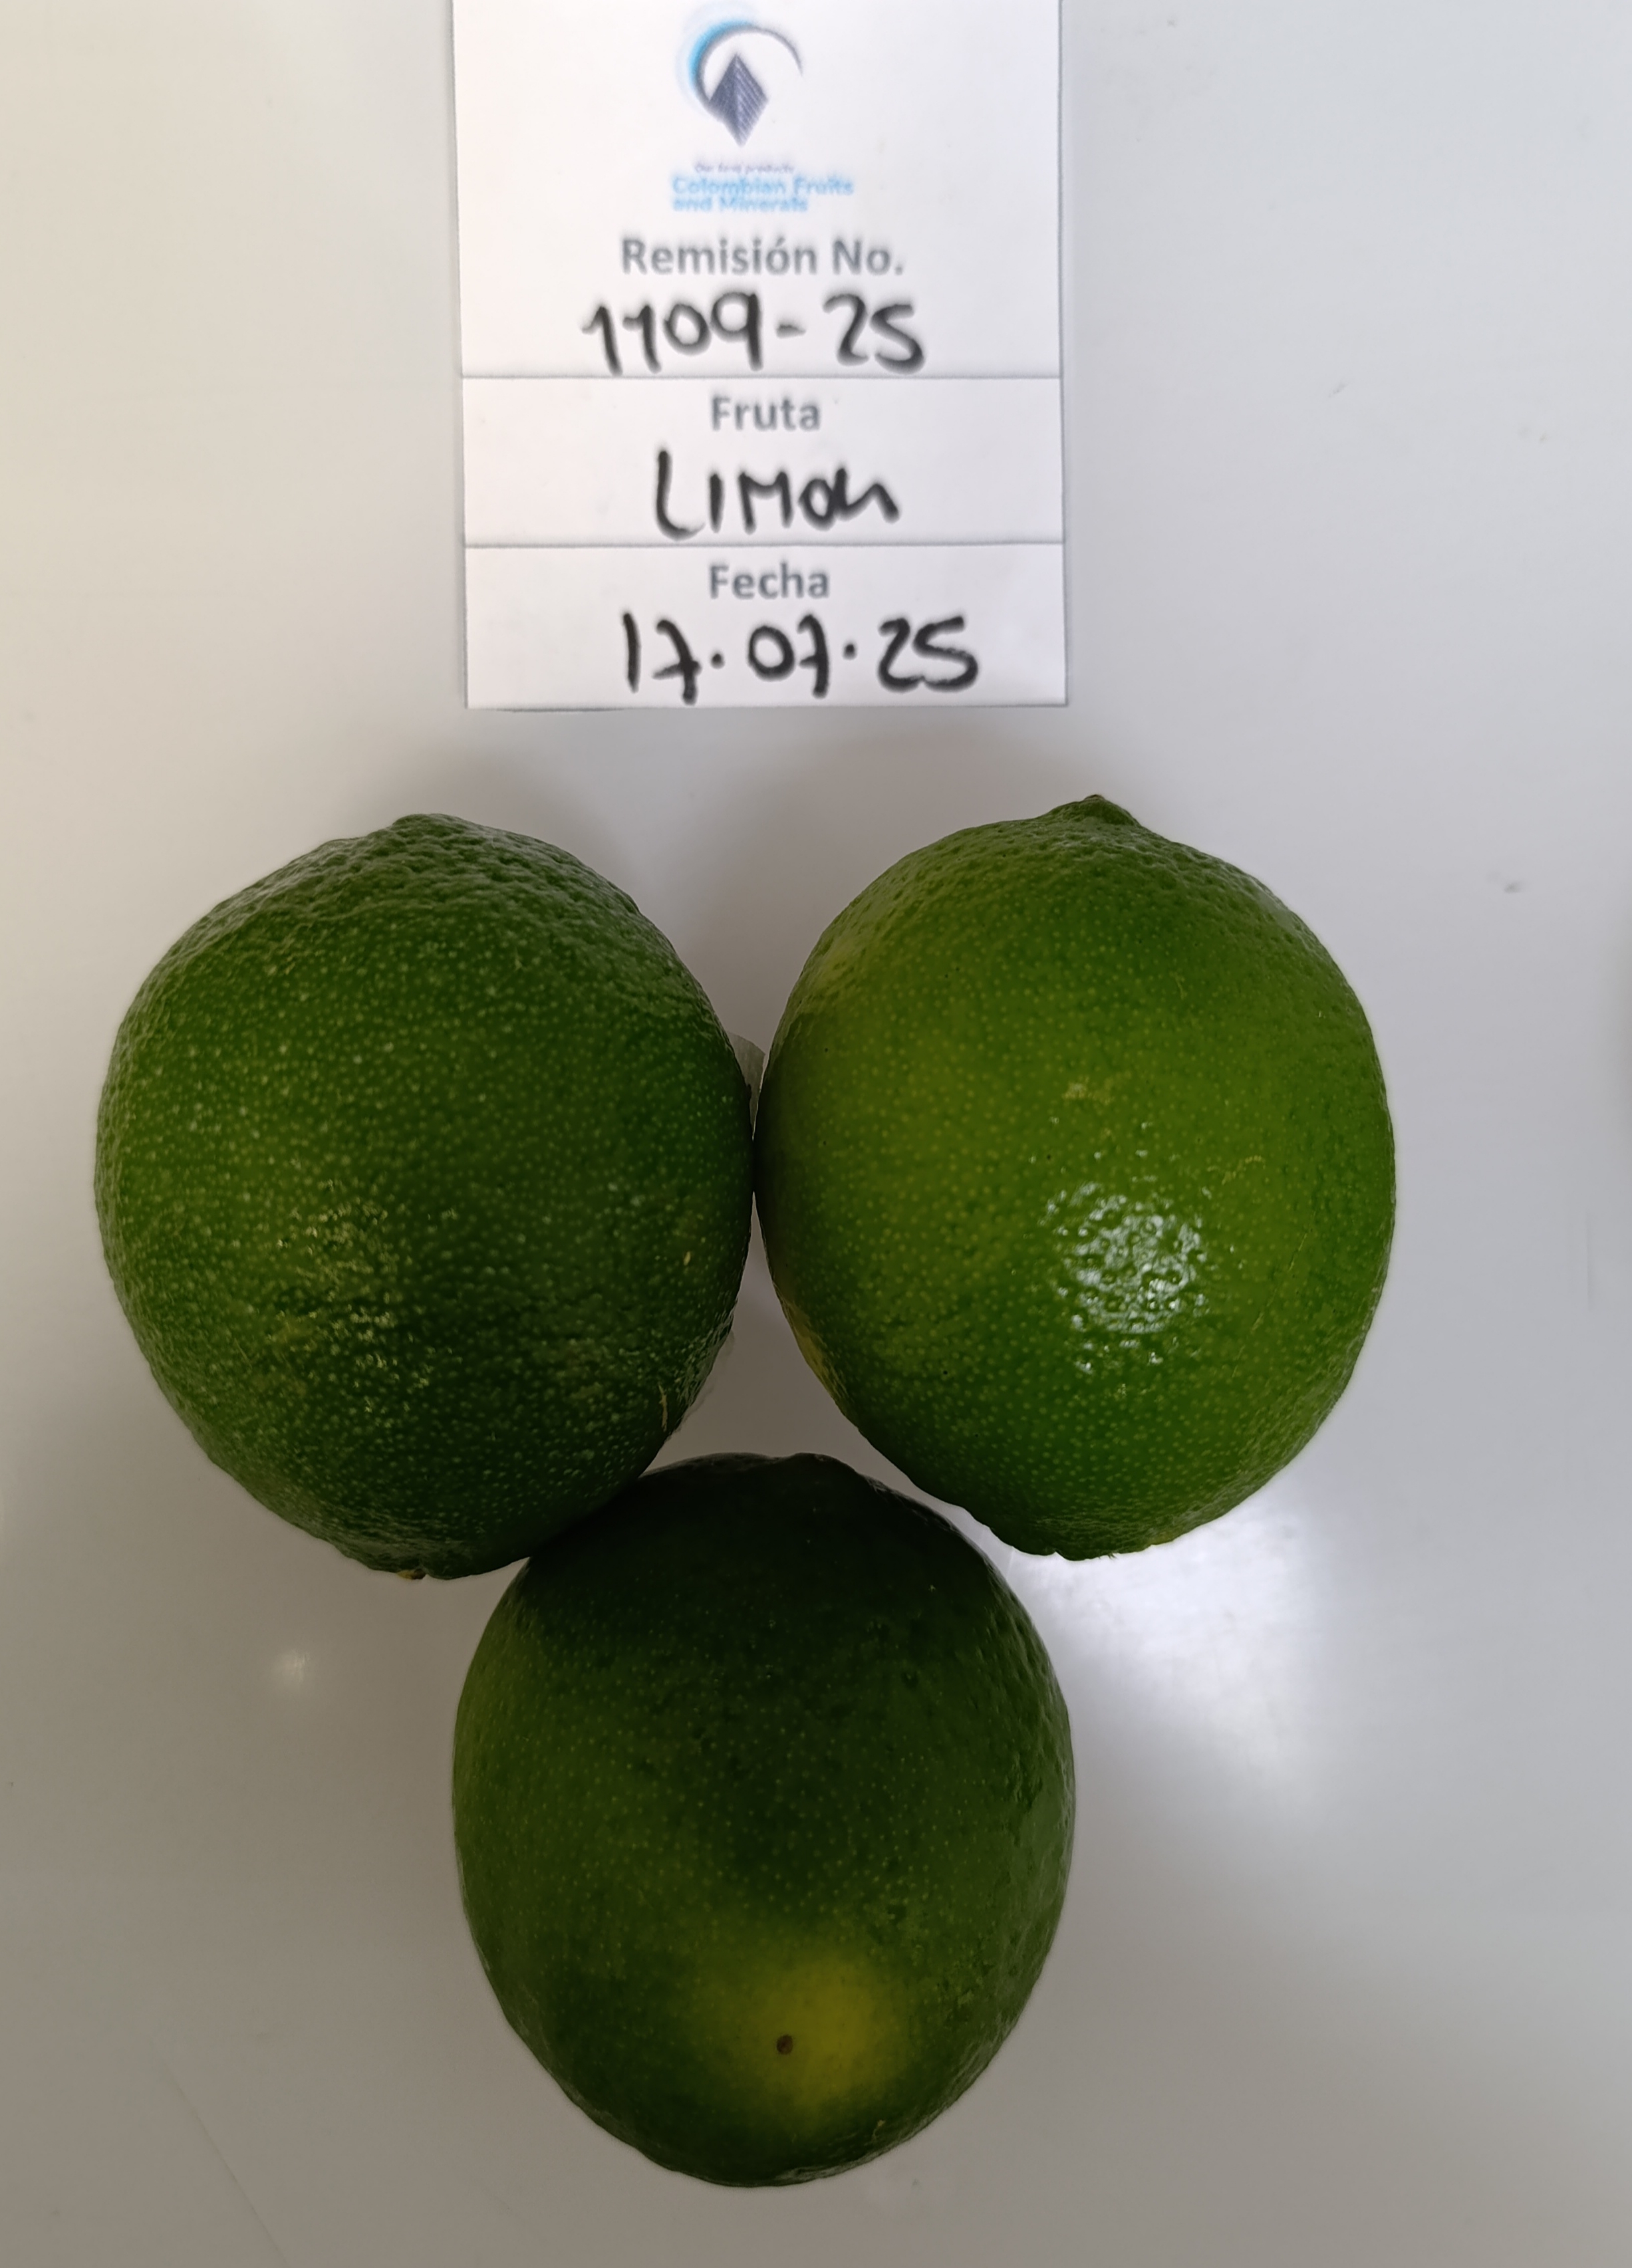 Our best products
Colombian Fruits
and Minerals
Remisión No.
1109-25
Fruta
LIMON
Fecha
17.07.25